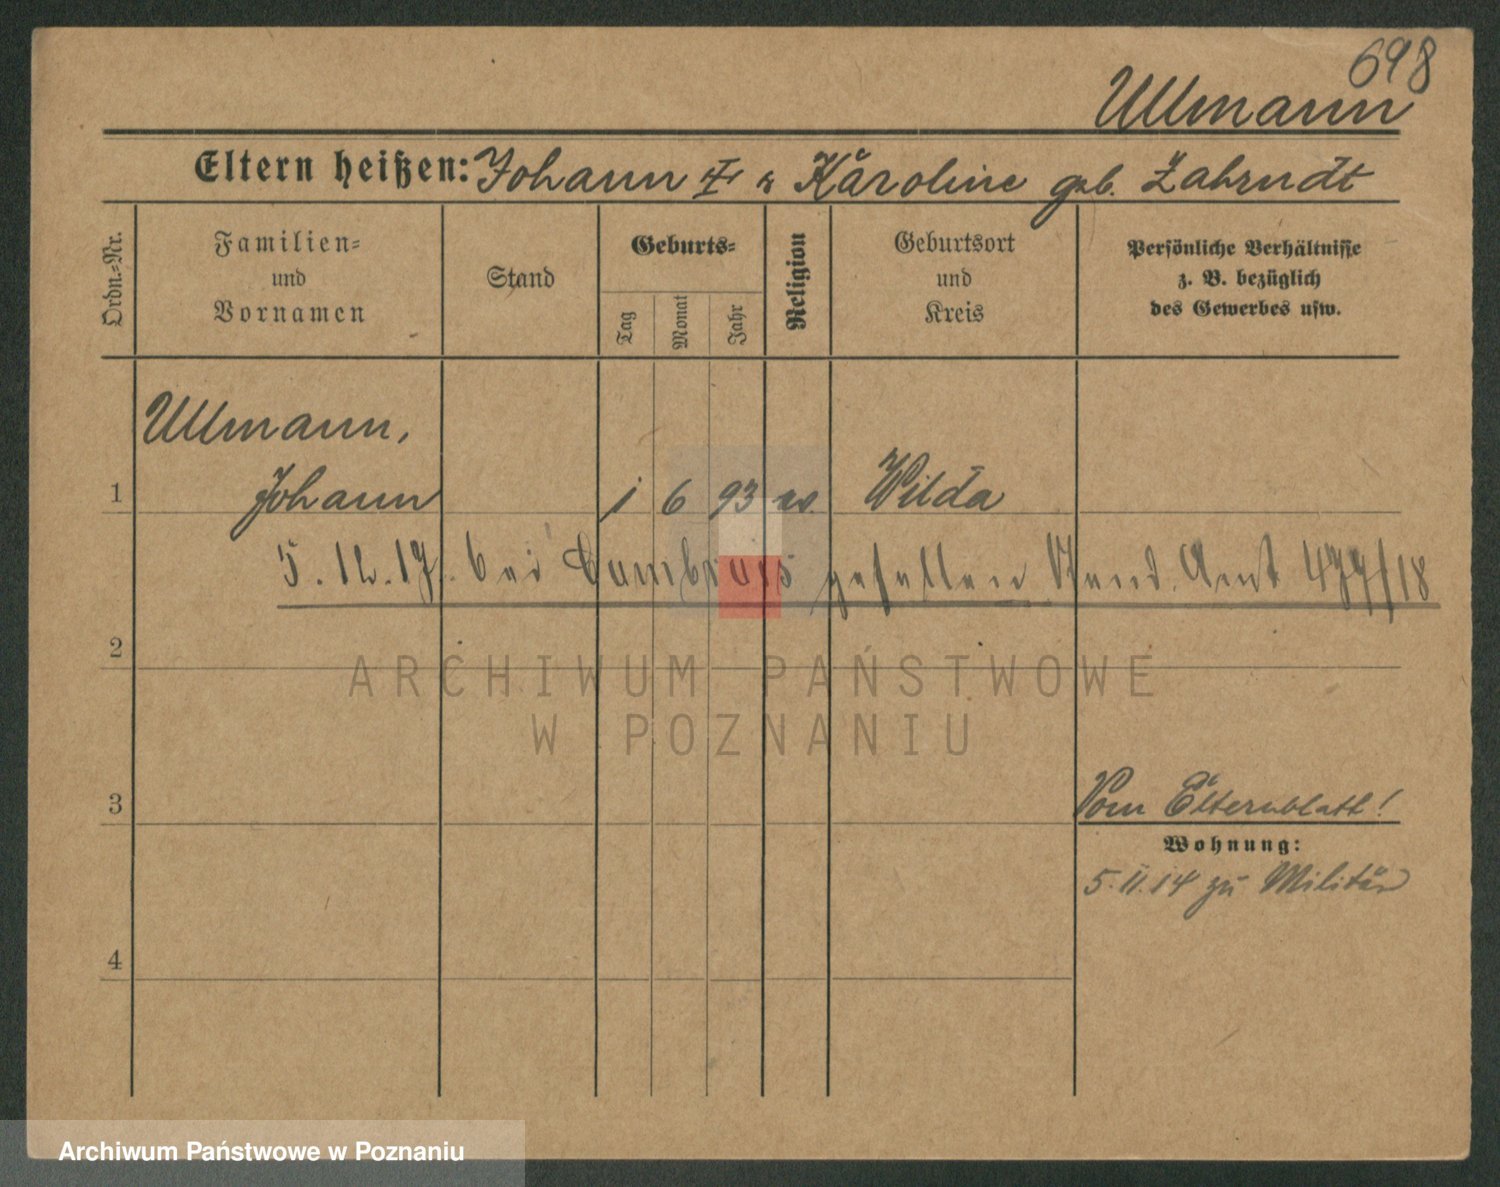 698
Ullmann
Eltern heißen: Johann I u Karoline geb. Zahrndt
Ordn.-Nr.
Familien- und Vornamen
Stand
Geburts-
Tag
Monat
Jahr
Religion
Geburtsort und Kreis
Persönliche Verhältnisse z. B. bezüglich des Gewerbes usw.
Ullmann,
1 Johann 1 6 93 ev. Wilda
5.12.17. bei Cambrais gefallen Stand. Amt 477/18
2
ARCHIWUM PAŃSTWOWE
W POZNANIU
3
Vom Elternblatt!
Wohnung:
5.11.14 zu Militär
4
Archiwum Państwowe w Poznaniu